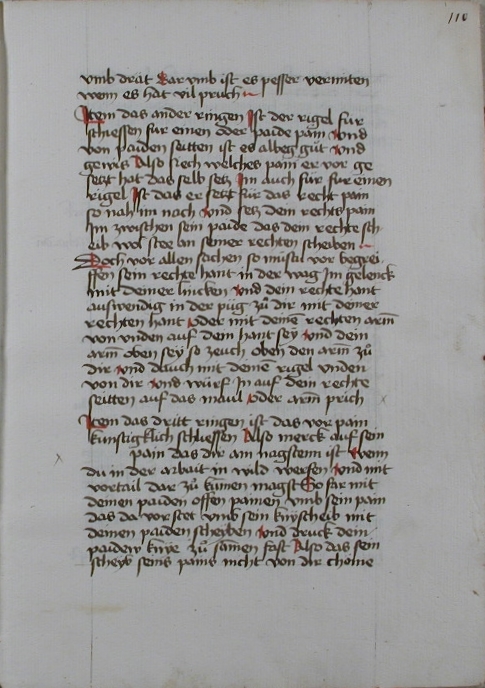 110
vmb drät Dar vmb ist es pesser vermiten
wenn es hat vil pruch
Item das ander ringen Ist der rigel für
schiessen für einen oder paide pain Vnd
von paiden seitten ist es albeg güt Vnd
gewis Also Sech welches pain er vor ge
setzt hat das selb setz Im auch für für einen
rigel Ist das er setzt für das recht pain
so nah im nach Vnd setz dein rechtz pain
Im zwischen sein paide das dein rechte sch
eib wol stee an seiner rechten scheiben
Doch vor allen sachen so müstu vor begrei
ffen sein rechte hant in der wag Im gelenck
mit deiner lincken Vnd dein rechte hant
auswendig in der püg zü dir mit deiner
rechten hant oder mit deinē rechten arm
von vnden auf dein hant sey Vnd dein
arm oben sey so zeuch oben den arm zü
dir Vnd druch mit deinē rigel vnden
von dir Vnd würf In auf dein rechte
seitten auf das maul oder arm prich
Item das dritt ringen ist das vor pain
künstigklich schliessen Also merck auf sein
pain das dir am nagsten ist wenn
du in der arbait in wild werfen Vnd mit
vortail dar zü kümen magst So far mit
deinen paiden offen painen vmb sein pain
das da vor stet vmb sein knyscheib mit
deinen paiden scheyben Vnd druck dein
paiden knye zü samen fast Also das sein
scheyb seins pains nicht von dir chome